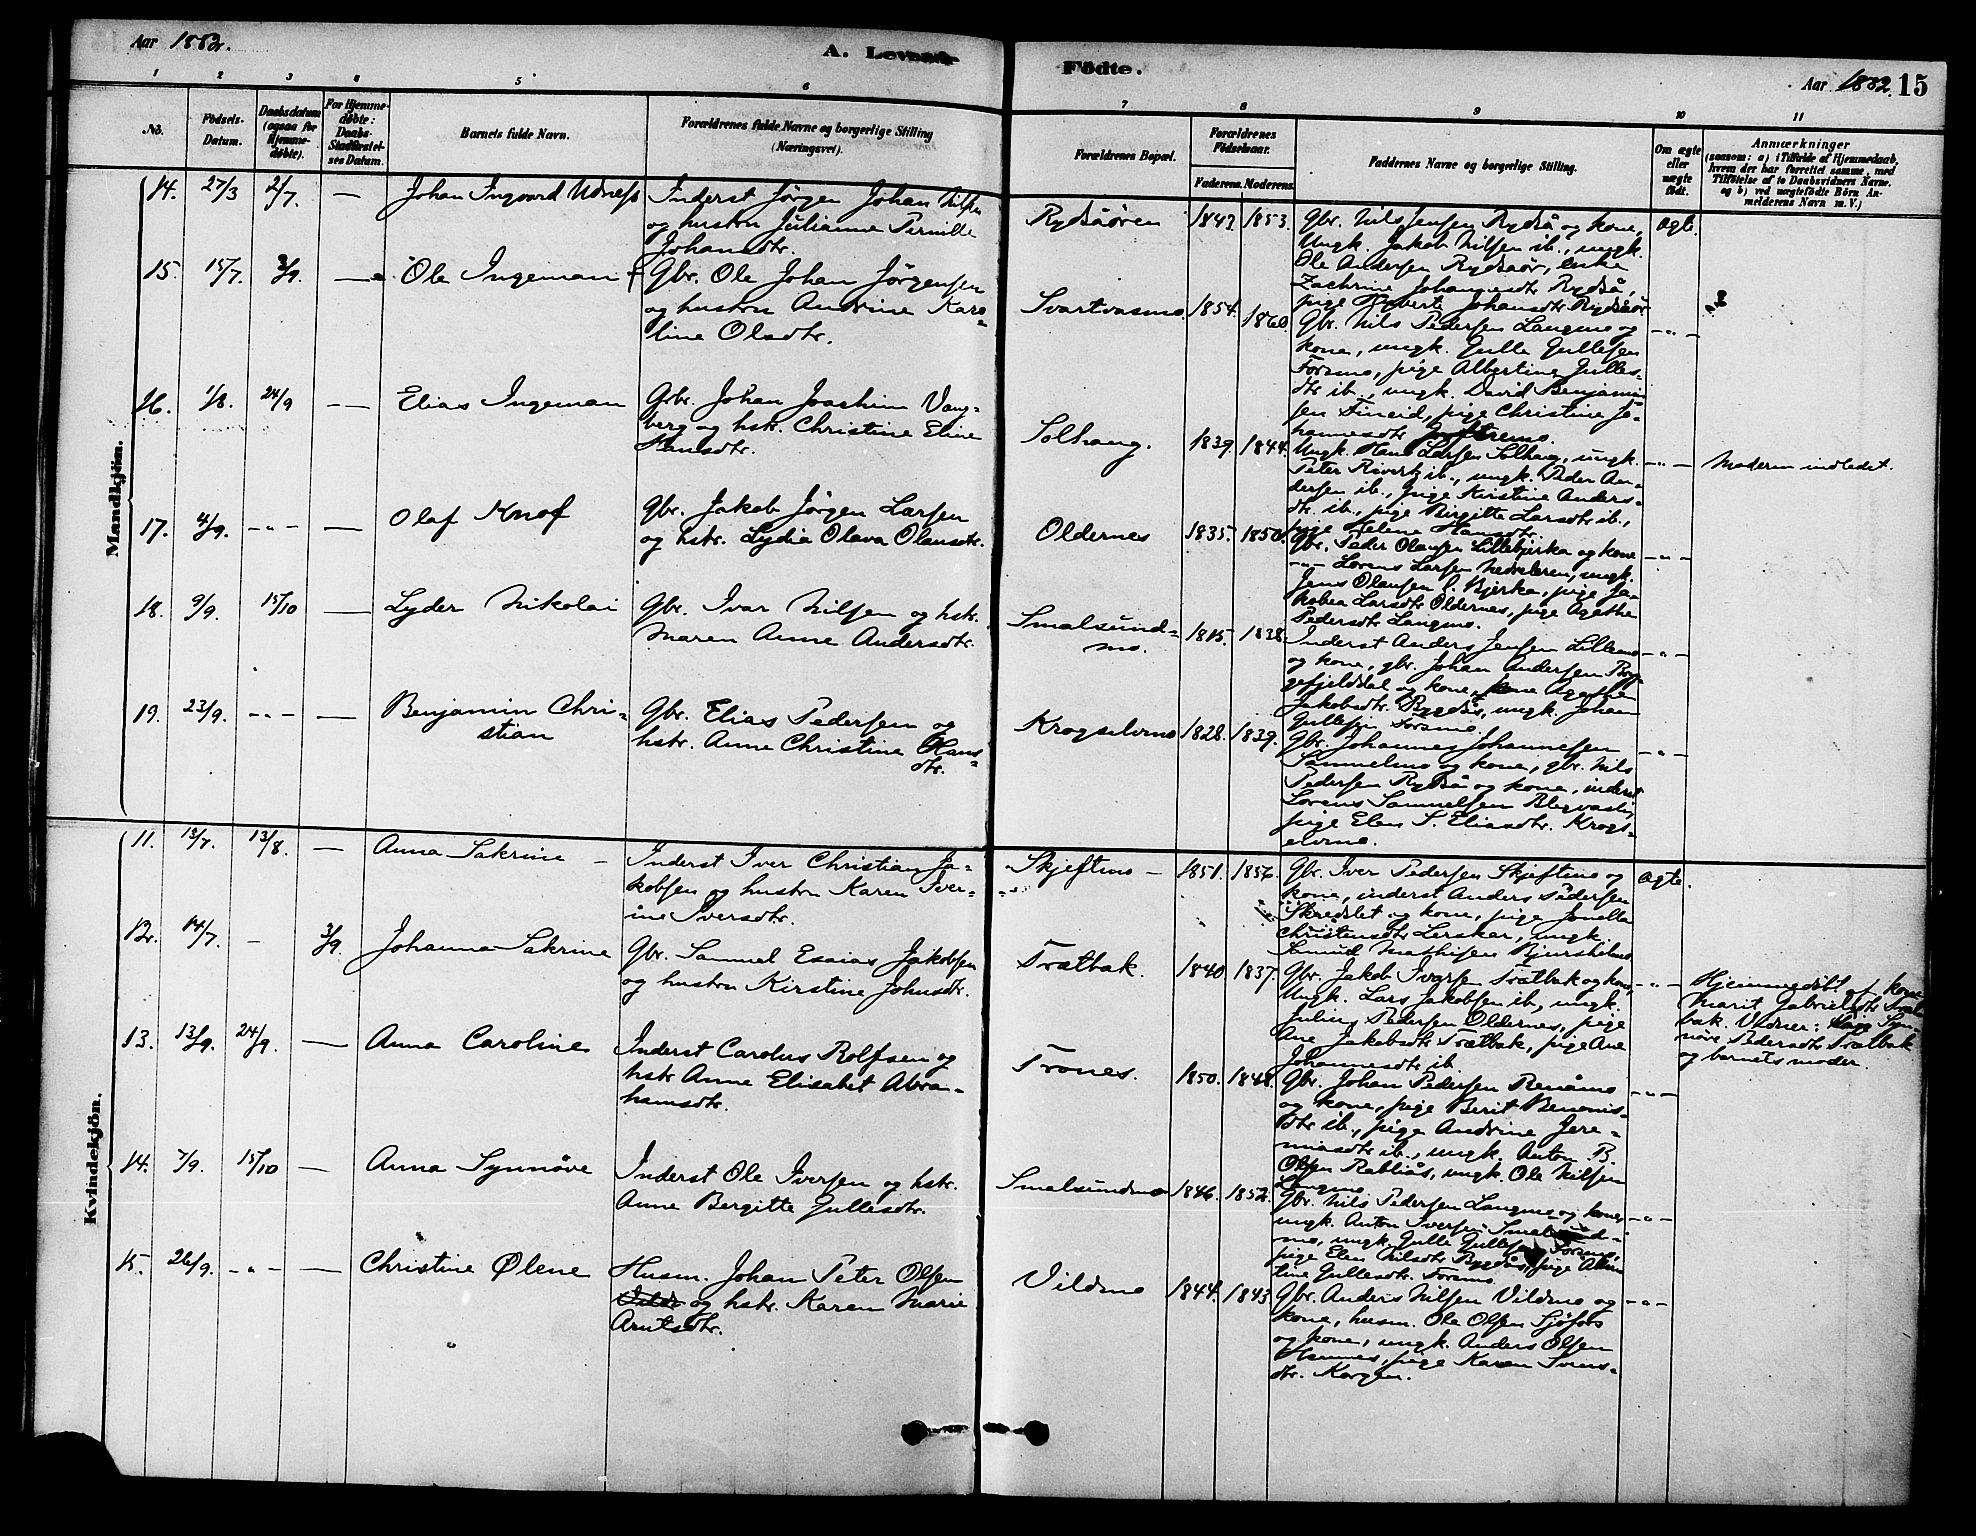 Aar 1882.
A. Levende
Födte.
Aar 1882. 15
1 2 3 4 5 6 7 8 9 10 11
No.
Födsels-Datum.
Daabsdatum (ogsaa for Hjemme-döbte).
For Hjemme-döbte: Daabs-Stadfæstel-ses Datum.
Barnets fulde Navn.
Forældrenes fulde Navne og borgerlige Stilling (Næringsvei).
Forældrenes Bopæl.
Forældrenes Födselsaar.
Faderens. Moderens.
Faddernes Navne og borgerlige Stilling.
Om ægte eller uægte födt.
Anmærkninger
(saasom: a) i Tilfælde af Hjemmedaab, hvem der har forrettet samme, med Tilföielse af to Daabsvidners Navne. og b) ved uægtefödte Börn An-melderens Navn m. V.)
Mandkjön.
14. 27/3 2/7. — Johan Ingvard
Inderst Jørgen Johan Nilsen
og hustru Julianna Pernille
Johansdtr.
Rydsåøren 1843. 1853.
Gbr. Nils Jensen Rydså og kone,
Ungk. Jakob Nilsen ib., ungk.
Ole Andersen Rydsåør, enke
Zachrine Johannesdtr Rydså,
pige Johansdtr Rydsåør
Ægte.
15. 15/7. 3/9. — Ole Ingeman
Gbr. Ole Johan Jørgensen
og hustru Andrine Karo-
line Olsdtr.
Svartvasmo. 1854. 1860
Gbr. Nils Pedersen Langmo og
kone, ungk. Gulle Gullesen
Forsmo, pige Albertine Gulles-
dtr ib., ungk. David Benjamin-
sen Fineid, pige Christine Jo-
hannesdtr
— " —
16. 1/8. 24/9 — Elias Ingeman
Gbr. Johan Joachim Vang-
berg og hstr. Christine Eline
Hansdtr.
Solhaug. 1839. 1844.
Ungk. Hans Larsen Solhaug, ungk.
Peter ib., ungk. Peder An-
dersen ib., Pige Kirstine Anders-
dtr ib., pige Birgitte Larsdtr ib.,
pige Helene Hansdtr.
— " — Moderen indledet.
17. 4/9. — " — — Olaf Knof
Gbr. Jakob Jørgen Larsen
og hstr. Lydia Olava Olausdtr.
Oldernes 1835. 1850.
Gbr. Peder Olausen Lillebjerka og kone
— " — Lorens Larsen ungk.
Jens Olausen L. Bjerka, pige Ja-
kobea Larsdtr Oldernes, pige Agathe
Pedersdtr Langmo.
— " —
18. 9/9. 15/10 — Lyder Nikolai
Gbr. Ivar Nilsen og hstr.
Maren Anne Andersdtr.
Smalsund-
mo. 1838
Inderst Anders Jensen Lillemo
og kone, gbr. Johan Andersen
og kone, Agathe
Jakobsdtr. Rygdås, ungk. Johan
Gullesen Forsmo.
— " —
19. 23/9. — " — — Benjamin Chri-
stian
Gbr. Elias Pedersen og
hstr. Anne Christine Hans-
dtr.
Krogselvmo 1828. 1839.
Gbr. Johannes Johannesen
og kone, gbr. Nils
Pedersen Rydså og kone, inderst
Lorens Samuelsen
pige Elen S. Eliasdtr. Krogs-
elvmo.
— " —
Kvindekjön.
11. 13/7. 13/8. — Anna Sakrine —
Inderst Iver Christian Ja-
kobsen og hustru Karen Iver-
ine Iversdtr.
Skjeftmo — 1851. 1856.
Gbr. Iver Pedersen Skjeftmo og
kone, inderst Anders Pedersen
og kone, pige Jonetta
Christensdtr Lerskar, ungk.
Mathisen
Ægte.
12. 14/7. — 3/9. Johanna Sakrine
Gbr. Samuel Esaias Jakobsen
og hustru Kirstine Johnsdtr.
Trætbak. 1840 1837.
Gbr. Jakob Ivarsen Trætbak og kone,
Ungk. Lars Jakobsen ib., ungk.
Julius Pedersen Oldernes, pige
Ane Jakobsdtr Trætbak, pige Ane
Johannesdtr ib.
— " —
Hjemmedøbt af kone
Marit Gabrielsdtr Træt-
bak. Vidner: Syn-
növe Pedersdtr Trætbak
og barnets moder.
13. 13/9. 24/9. — Anna Caroline
Inderst Carolus Rolfsen og
hstr Anne Elisabet Abra-
hamsdtr.
Trones. 1850. 1848.
Gbr. Johan Pedersen Renåmo
og kone, pige Berit Benonis-
dtr ib., pige Andrine Jere-
miasdtr ib., ungk. Anton B.
Olsen Rabliås, ungk. Ole Nilsen
Langmo
— " —
14. 7/9. 15/10 — Anna Synnöve
Inderst Ole Iversen og hstr.
Anne Bergitte Gullesdtr.
Smalsundmo 1846. 1852.
Gbr. Nils Pedersen Langmo og kone,
ungk. Anton Iversen Smalsund-
mo, ungk. Gulle Gullesen Forsmo,
pige Elen Nilsdtr Rygdås, pige
Gullesdtr. Forsmo.
— " —
15. 26/9. — " — — Christine Olene
Husm. Johan Peter Olsen
og hstr. Karen Marie
Arntsdtr.
Vildmo 1844. 1843
Gbr. Anders Nilsen Vildmo og
kone, husm. Ole Olsen Sjøfors
og kone, ungk. Anders Olsen
pige Karen Ivers-
dtr. Korgen.
— " —